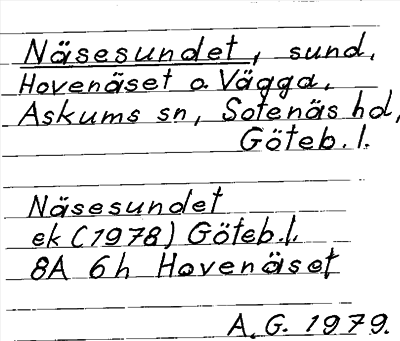 Näsesundet, sund,
Hovenäset o. Vägga,
Askums sn, Sotenäs hd,
Göteb. l.
Näsesundet
ek (1978) Göteb. l.
8A 6h Hovenäset
A. G. 1979.